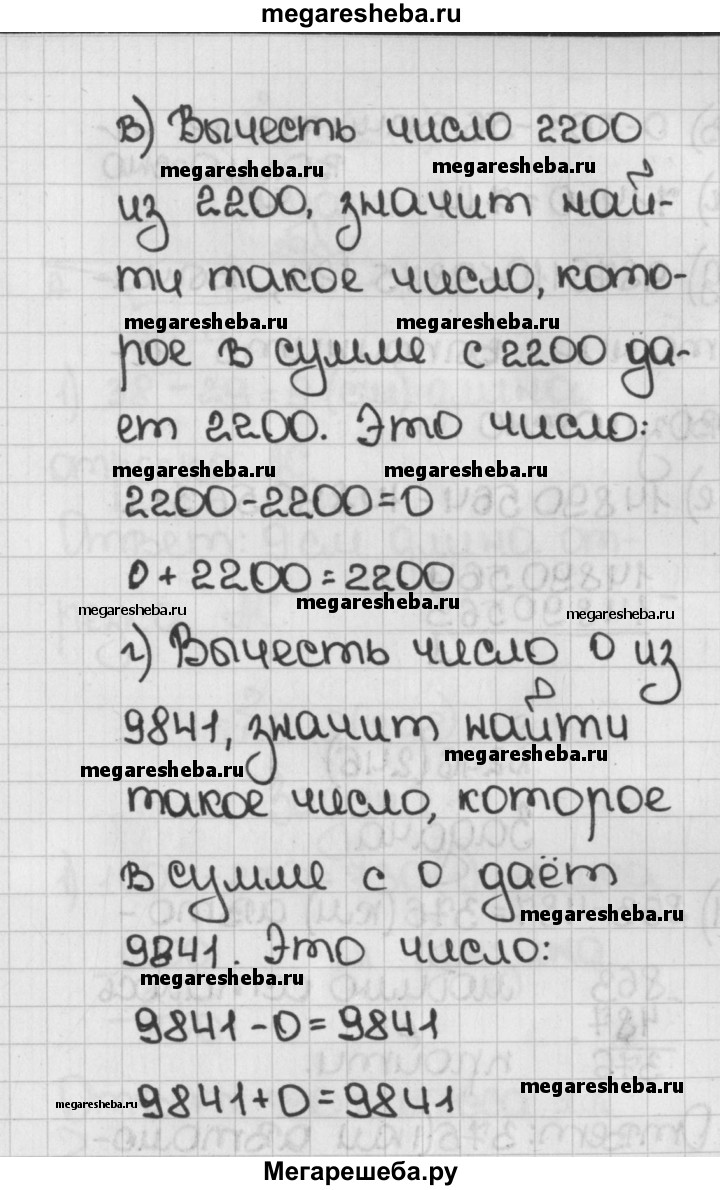 megaresheba.ru
в) Вычесть число 2200
megaresheba.ru megaresheba.ru
из 2200, значит най-
ти такое число, кото-
megaresheba.ru megaresheba.ru
рое в сумме с 2200 да-
ет 2200. Это число:
megaresheba.ru megaresheba.ru
2200-2200=0
0+2200=2200
megaresheba.ru megaresheba.ru megaresheba.ru
г) Вычесть число 0 из
9841, значит найти
megaresheba.ru megaresheba.ru
такое число, которое
в сумме с 0 даёт
megaresheba.ru
9841. Это число:
megaresheba.ru
9841-0=9841
megaresheba.ru megaresheba.ru
9841+0=9841
Мегарешеба.ру